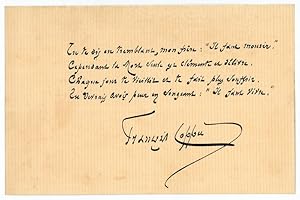 Tu te dis en tremblant, mon frère : "Il faut mourir."
Cependant la Mort seule est clémente et délivre.
Chaque jour te vieillit et te fait plus souffrir.
Tu devrais avoir peur en songeant : "Il faut vivre."
François Coppée